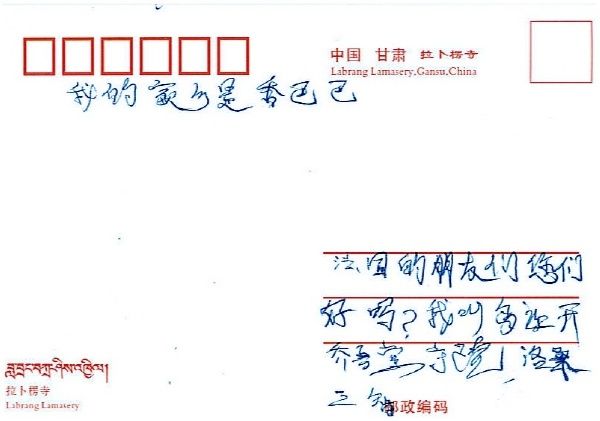 中国 甘肃 拉卜楞寺
Labrang Lamasery,Gansu,China
我的家乡是香巴巴
法国的朋友们您们
好吗?我叫
བླ་བྲང་བཀྲ་ཤིས་འཁྱིལ།
拉卜楞寺
Labrang Lamasery
邮政编码